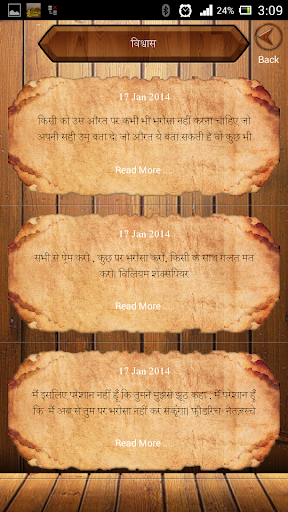 24% 3:09
विश्वास
Back
17 Jan 2014
किसी को उस औरत पर कभी भी भरोसा नहीं करना चाहिए जो
अपनी सही उम्र बता दे। जो औरत ये बता सकती है वो कुछ भी
Read More ...
17 Jan 2014
सभी से प्रेम करो , कुछ पर भरोसा करो, किसी के साथ गलत मत
करो। विलियम शेक्सपियर
Read More ...
17 Jan 2014
मैं इसलिए परेशान नहीं हूँ कि तुमने मुझसे झूठ कहा , मैं परेशान हूँ
कि मैं अब से तुम पर भरोसा नहीं कर सकूंगा। फ्रीडरिच- नेतज़स्चे
Read More ...